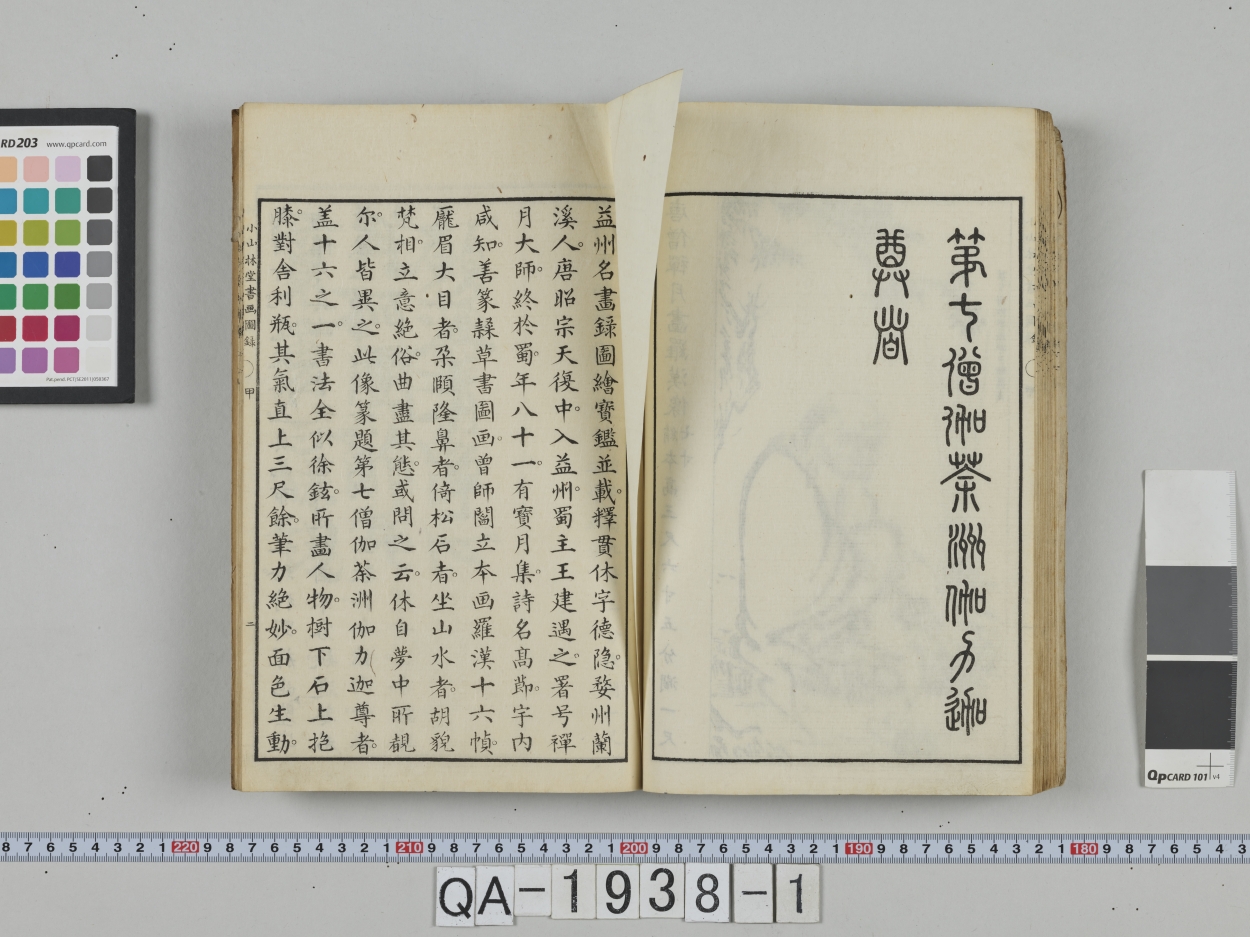 第七僧伽荼洲伽力迦
尊者
益州名畫録圖繪寳鑑並載。釋貫休字德隐。婺州蘭
溪人。唐昭宗天復中。入益州。蜀主王建遇之。署号禪
月大師。終於蜀。年八十一。有寳月集。詩名髙莭。宇内
咸知。善篆隷草書圖画。曾師閻立本画羅漢十六幀。
厖眉大目者。朶頤隆鼻者。倚松石者。坐山水者。胡貌
梵相。立意絶俗。曲盡其態。或問之云。休自夢中所覩
尔。人皆異之。此像篆題第七僧伽荼洲伽力迦尊者。
盖十六之一。書法全似徐鉉。所畫人物。樹下石上抱
膝對舍利瓶。其氣直上三尺餘。筆力絶妙。面色生動。
小山林堂書画圖録 甲 二
RD 203 www.qpcard.com
QPCARD 101 v4
8 7 6 5 4 3 2 1 220 9 8 7 6 5 4 3 2 1 210 9 8 7 6 5 4 3 2 1 200 9 8 7 6 5 4 3 2 1 190 9 8 7 6 5 4 3 2 1 180 9 8 7 6 5 4 3
QA-1938-1